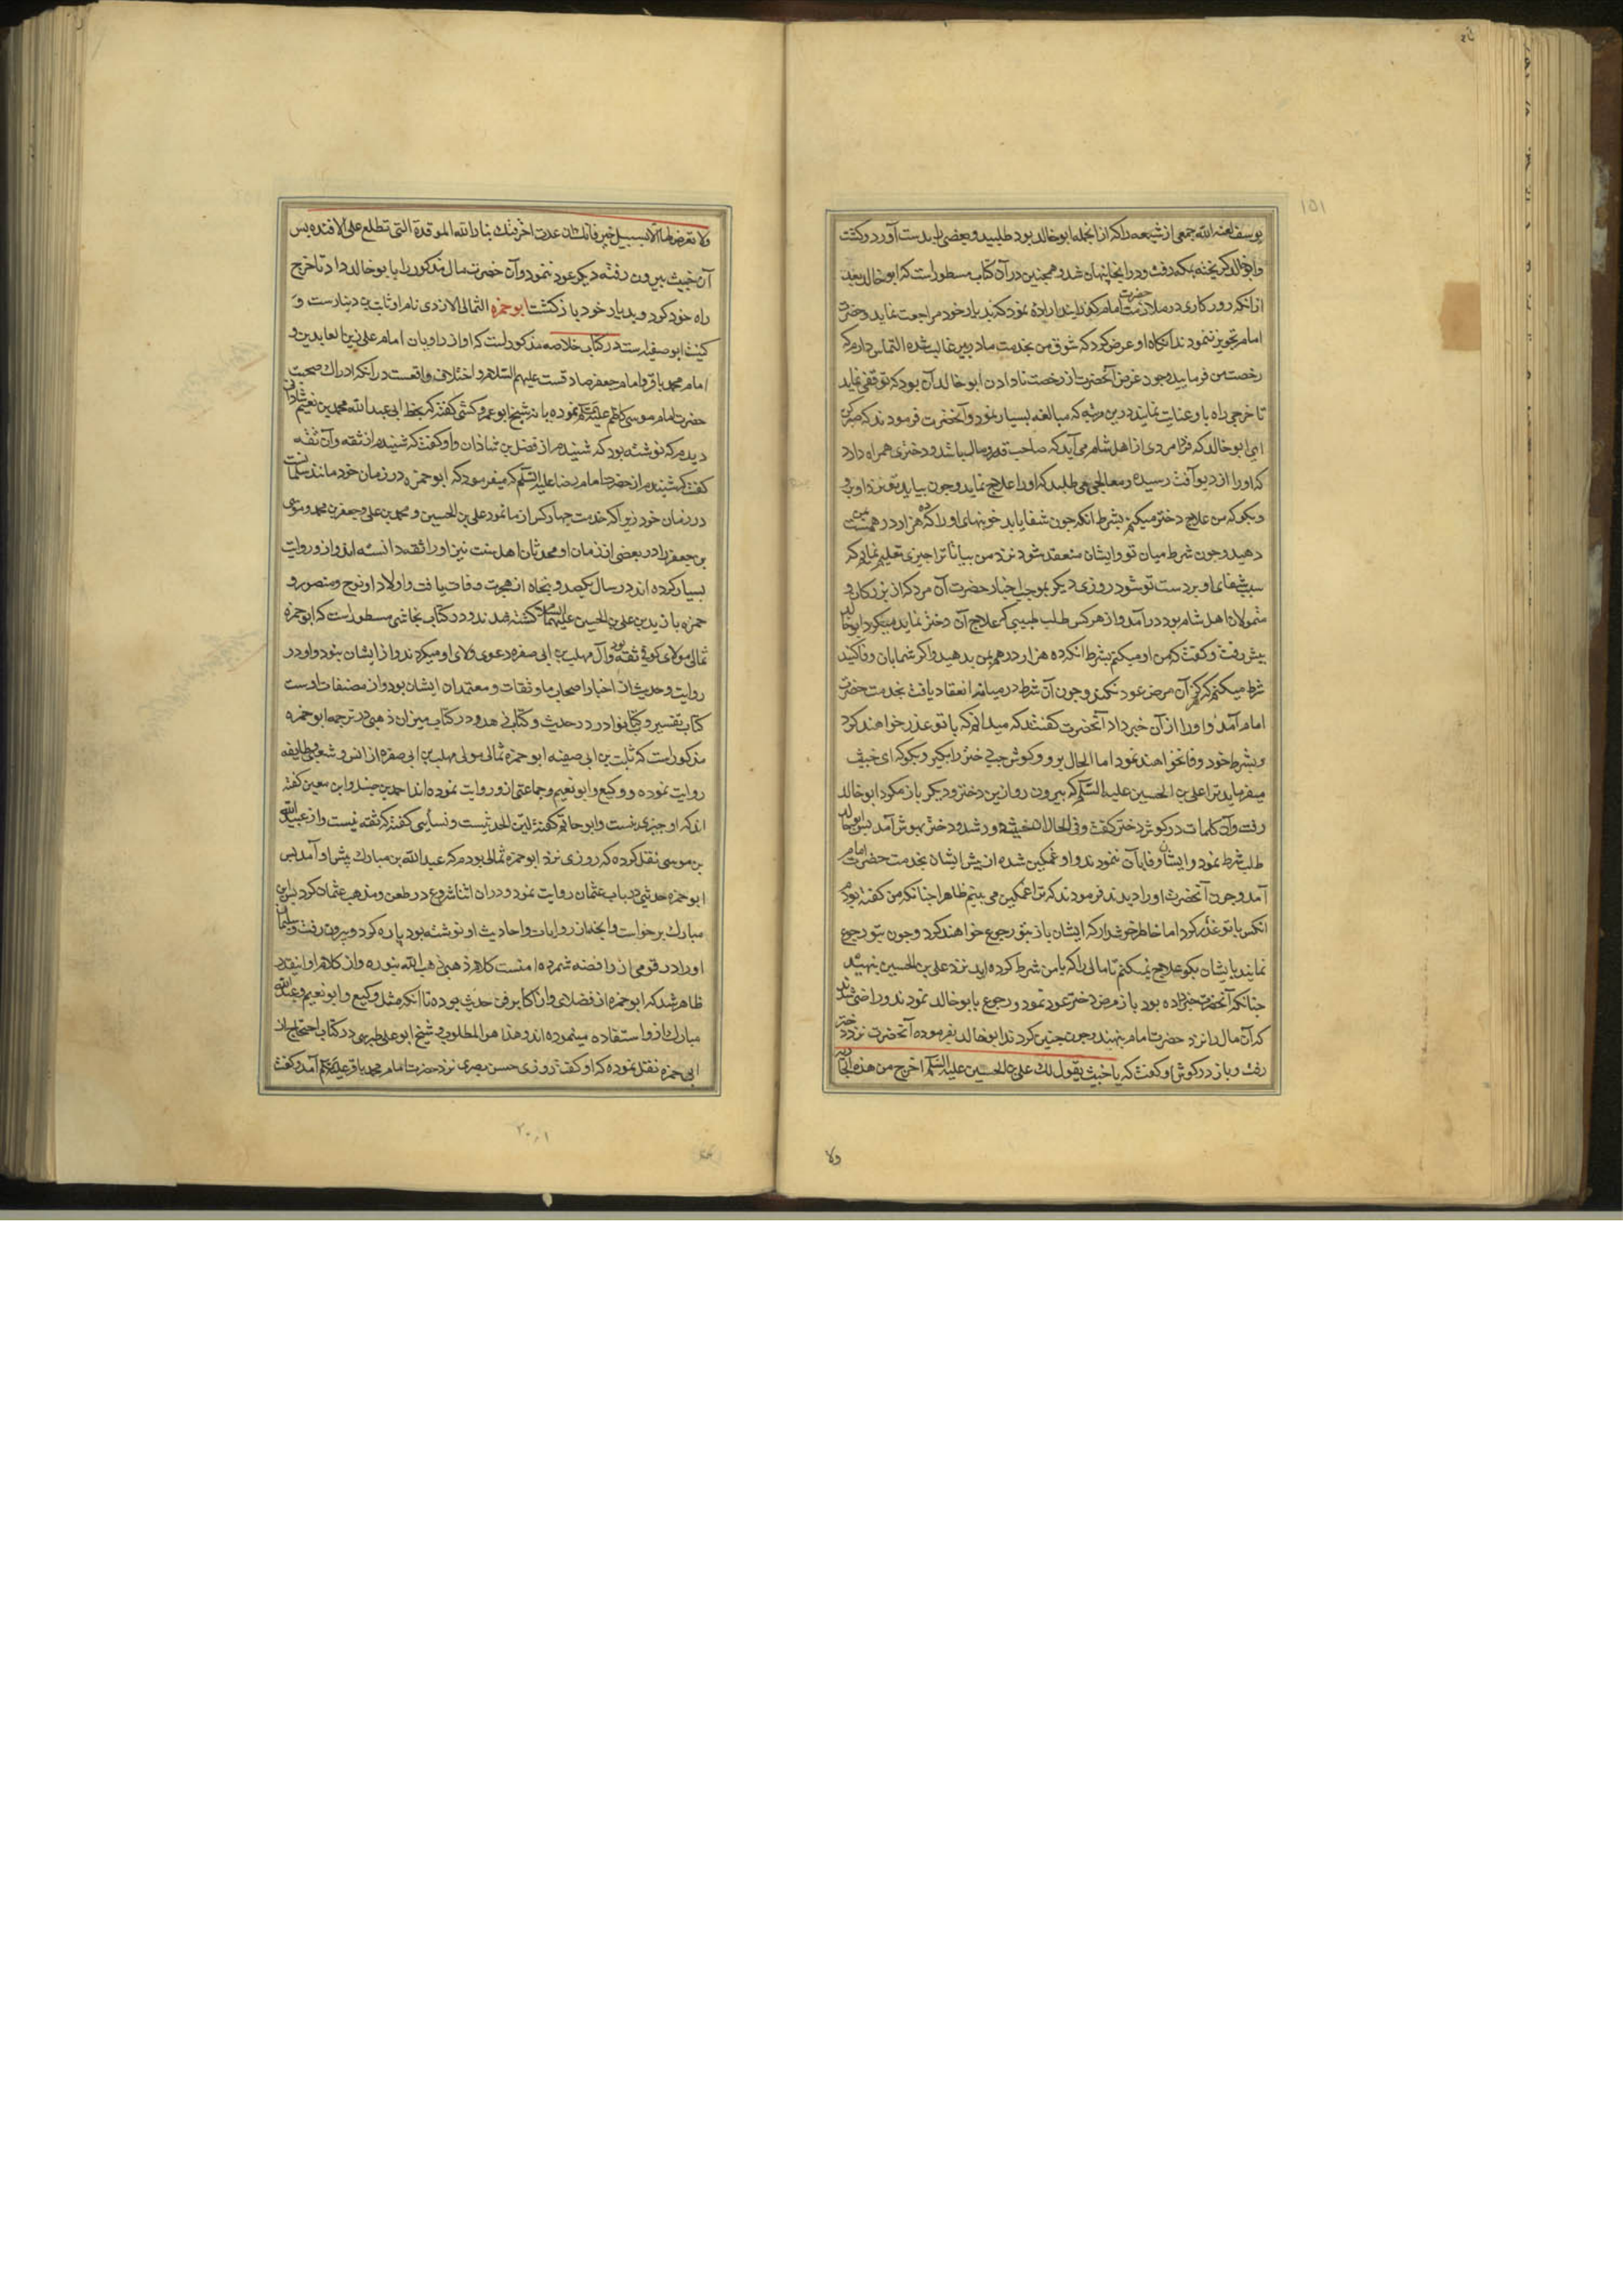 ۱۵۱
یوسف لعنه الله جمعی از شیعه را که از انجمله ابو خالد بود طلبید و بعضی را بدست آورد و کشت
و ابو خالد کریخته بمکه رفت و در انجا پنهان شد و همچنین در آن کتاب مسطور است که ابو خالد بعد
از انکه روزکاری در ملازمت حضرت امام کذرانید اراده نمود که بدیار خود مراجعت نماید و حضرت
امام تجویز ننمودند انکاه او عرض کرد که شوق من بخدمت مادر بر من غالب شده التماس دارم که
رخصت من فرمایید و چون غرض آنحضرت از رخصت نا دادن ابو خالد آن بود که توقفی نماید
تا خرجی راه باو عنایت نمایند درین مرتبه که مبالغه بسیار نمود آنحضرت فرمودند که صبر کن
ای ابو خالد که فردا مردی از اهل شام می آید که صاحب قدر و مال باشد و دختری همراه دارد
که او را از دیو آفت رسیده و معالجی می طلبد که او را علاج نماید و چون بیاید تو نزد او برو
و بکو که من علاج دختر میکنم بشرط انکه چون شفا یابد خونبهای او را که ده هزار درهمست بمن
دهید و چون شرط میان تو و ایشان منعقد شود نزد من بیا تا ترا چیزی تعلیم نمایم که
سبب شفای او بر دست تو شود روزی دیکر بموجب اخبار حضرت آن مرد که از بزرکان و
متمولان اهل شام بود در آمد و از هر کس طلب طبیبی که علاج آن دختر نماید میکرد ابو خالد
پیش رفت و کفت که من او میکنم بشرط انکه ده هزار درهم بمن بدهید و اکر شما بآن وفا کنید
شرط میکنم که هرکز آن مرض عود نکند و چون آن شرط در میانه انعقاد یافت بخدمت حضرت
امام آمد و او را از آن خبر داد آنحضرت کفتند که میدانم که با تو عذر خواهند کرد
و بشرط خود وفا نخواهند نمود اما الحال برو و کوش چپ دختر را بکیر و بکو که ای خبیث
میفرماید ترا علی بن الحسین علیه السلام که بیرون رو از بن دختر و دیکر باز مکرد ابو خالد
رفت و آن کلمات در کوش دختر کفت و فی الحال آن خبیث دور شد و دختر بهوش آمد پس ابو خالد
طلب شرط نمود و ایشان وفا بآن ننمودند و او غمکین شده از پیش ایشان بخدمت حضرت امام
آمد و چون آنحضرت او را دیدند فرمودند که ترا غمکین می بینم ظاهرا چنانکه من کفته بودم
انکس با تو غذر کرد اما خاطر خوش دار که ایشان باز بتو رجوع خواهند کرد و چون بتو رجوع
نمایند بایشان بکو علاج نمیکنم تا مالی را که با من شرط کرده اید نزد علی بن الحسین بنهید
چنانکه آنحضرت خبر داده بود باز مرض دختر عود نمود و رجوع بابو خالد نمودند و راضی شدند
که آن مال را نزد حضرت امام بنهند و چون چنین کردند ابو خالد بفرموده آنحضرت نزد دختر
رفت و باز در کوش او کفت که یا خبیث یقول لك علی بن الحسین علیه السلام اخرج من هذه الجاریه
ولا
ولا تعرض لها الا بسبیل خیر فانك ان عدت احرقتك بنار الله الموقدة التی تطلع علی الافئده پس
آن خبیث بیرون رفته دیکر عود ننمود و آن حضرت مال مذکور را بابو خالد داد تا خرج
راه خود کرد و بدیار خود باز کشت ابو حمزه الثمالی الازدی نام او ثابت بن دینارست و
کنیت ابو صفیه است در کتاب خلاصه مذکور است که او از راویان امام علی زین العابدین و
امام محمد باقر و امام جعفر صادقست علیهم السلام و اختلاف واقعست در آنکه ادراك صحبت
حضرت امام موسی کاظم علیه السلام نموده یا نه شیخ ابو عمرو کشی کفته که بخط ابی عبدالله محمد بن نعیم شاذانی
دیدم که نوشته بود که شنیدم از فضل بن شاذان و او کفت که شنیدم از ثقه و آن ثقه
کفت که شنیدم از حضرت امام رضا علیه السلام که میفرمود که ابو حمزه در زمان خود مانند سلمانست
در زمان خود زیرا که خدمت چهار کس از ما نمود علی بن الحسین و محمد بن علی و جعفر بن محمد و موسی
بن جعفر را در بعضی از زمان او محدثان اهل سنت نیز او را ثقه دانسته اند و از و روایت
بسیار کرده اند در سال یکصد و پنجاه از هجرت وفات یافت و اولاد او نوح و منصور و
حمزه با زید بن علی بن الحسین علیهما السلام کشته شدند و در کتاب نجاشی مسطور است که ابو حمزه
ثمالی مولای کوفی ثقه بود و آل مهلب بن ابی صفره دعوی ولای او میکردند و از ایشان نبود و او در
روایت و حدیث از اخیار اصحاب ما و ثقات و معتمدان ایشان بود و از مصنفات اوست
کتاب تفسیر و کتاب نوادر در حدیث و کتابی در زهد و در کتاب میزان ذهبی در ترجمه ابو حمزه
مذکور است که ثابت بن ابی صفیه ابو حمزه ثمالی مولی مهلب بن ابی صفره از انس و شعبی و طایفه
روایت نموده و وکیع و ابو نعیم و جماعتی ازو روایت نموده اند احمد بن حنبل و ابن معین کفته
اند که او چیزی نیست و ابو حاتم کفته لین الحدیثست و نسائی کفته که ثقه نیست و از عبید الله
بن موسی نقل کرده که روزی نزد ابو حمزه ثمالی بودم که عبدالله بن مبارك پیش او آمد پس
ابو حمزه حدیثی در باب عثمان روایت نمود و در ان اثنا شروع در طعن و مذهب عثمان کرد پس ابن
مبارك برخواست و انچه از روایات و احادیث او نوشته بود پاره کرد و بیرون رفت و سلیمانی
او را در قومی از رافضه شمرده امنست کلام ذهبی ذهب الله بنوره و از کلام او اینقدر
ظاهر شد که ابو حمزه از فضلای و از اکابر فن حدیث بوده تا آنکه مثل وکیع و ابو نعیم و عبدالله
مبارك ازو استفاده مینموده اند و هذا هو المطلوب و شیخ ابو علی طبرسی در کتاب احتجاج از
ابی حمزه نقل نموده که او کفت روزی حسن بصری نزد حضرت امام محمد باقر علیه السلام آمد و کفت